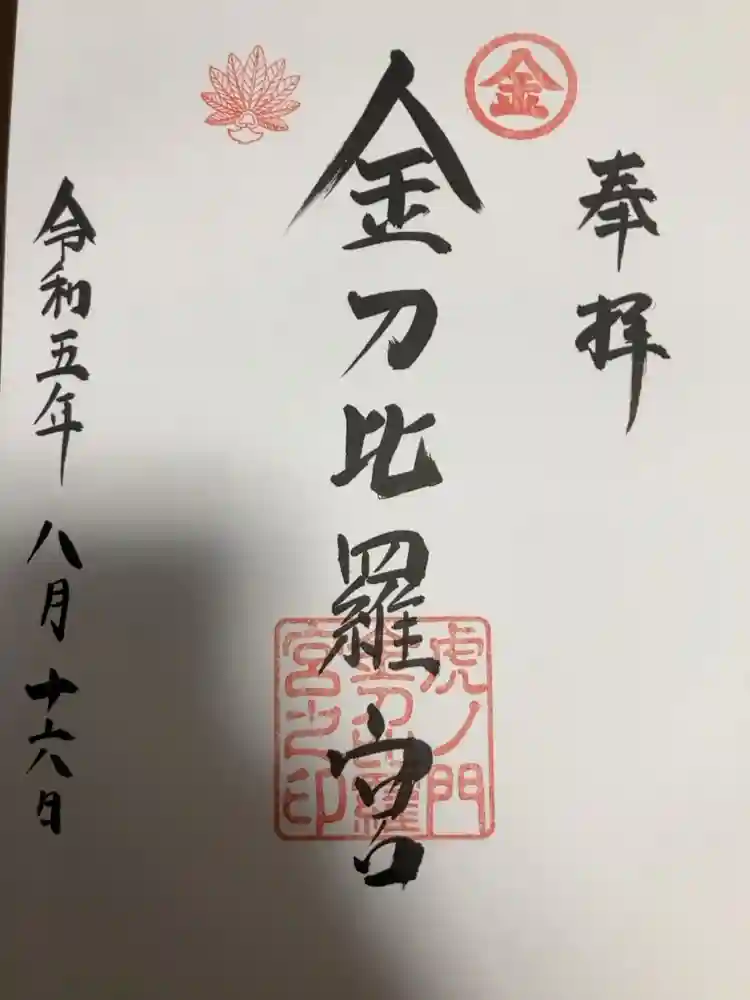 奉拝
金
金刀比羅宮
虎ノ門
金刀比羅
宮之印
令和五年 八月十六日